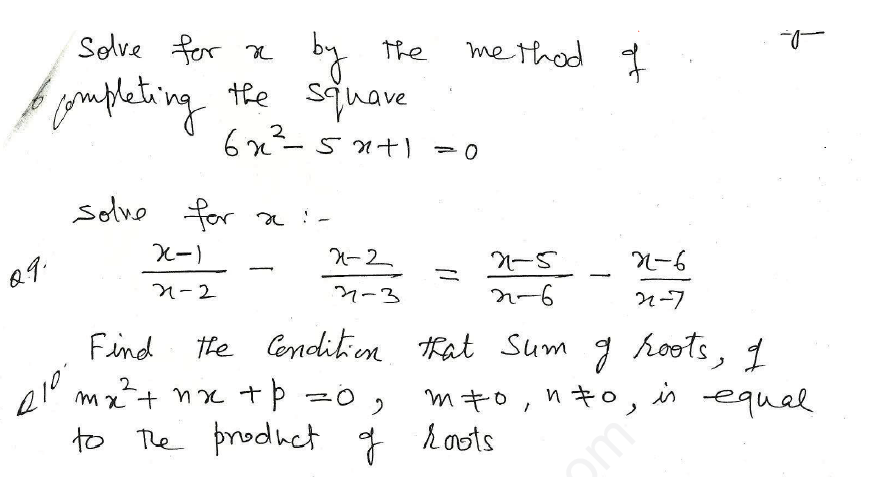 Solve for x by the method of
completing the square
6x² - 5x + 1 = 0
Solve for x :-
Q9. (x-1)/(x-2) - (x-2)/(x-3) = (x-5)/(x-6) - (x-6)/(x-7)
Find the Condition that sum of roots, of
Q10. mx² + nx + p = 0, m ≠ 0, n ≠ 0, is equal
to the product of roots
om